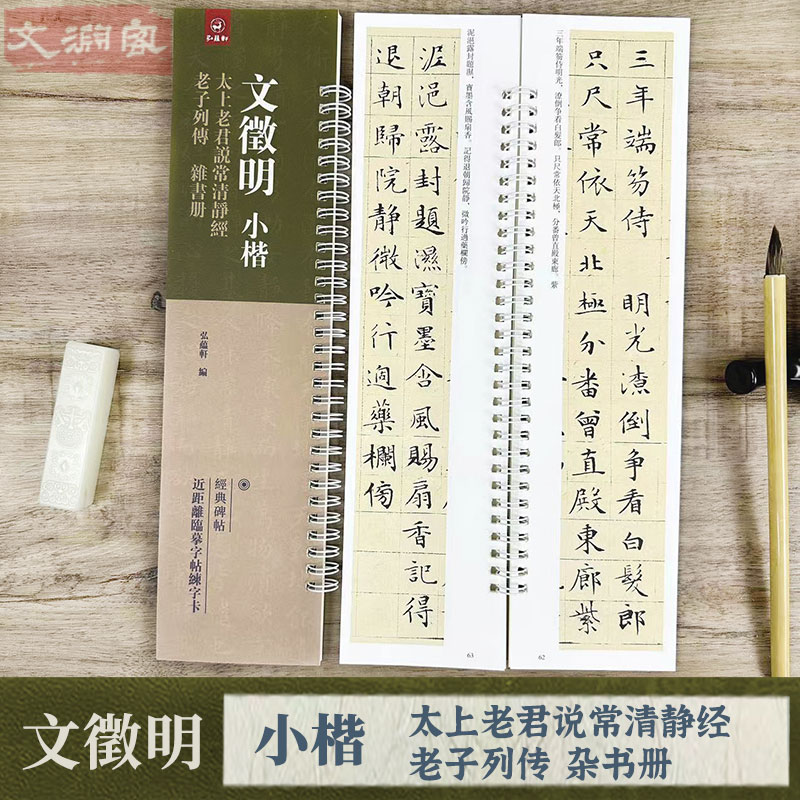 弘蘊軒
文徵明 小楷
太上老君説常清靜經
老子列傳 雜書册
弘蘊軒 編
經典碑帖
近距離臨摹字帖練字卡
三年端笏侍明光，潦倒争看白髮郎。只尺常依天北極，分番曾直殿東廊。紫
三年端笏侍 明光潦倒争看白髮郎
只尺常依天北極分番曾直殿東廊紫
62
泥浥露封題濕，寶墨含風賜扇香。記得退朝歸院静，微吟行過藥欄傍。
泥浥露封題濕寶墨含風賜扇香記得
退朝歸院静微吟行過藥欄傍
63
文徵明
小楷
太上老君说常清静经
老子列传 杂书册